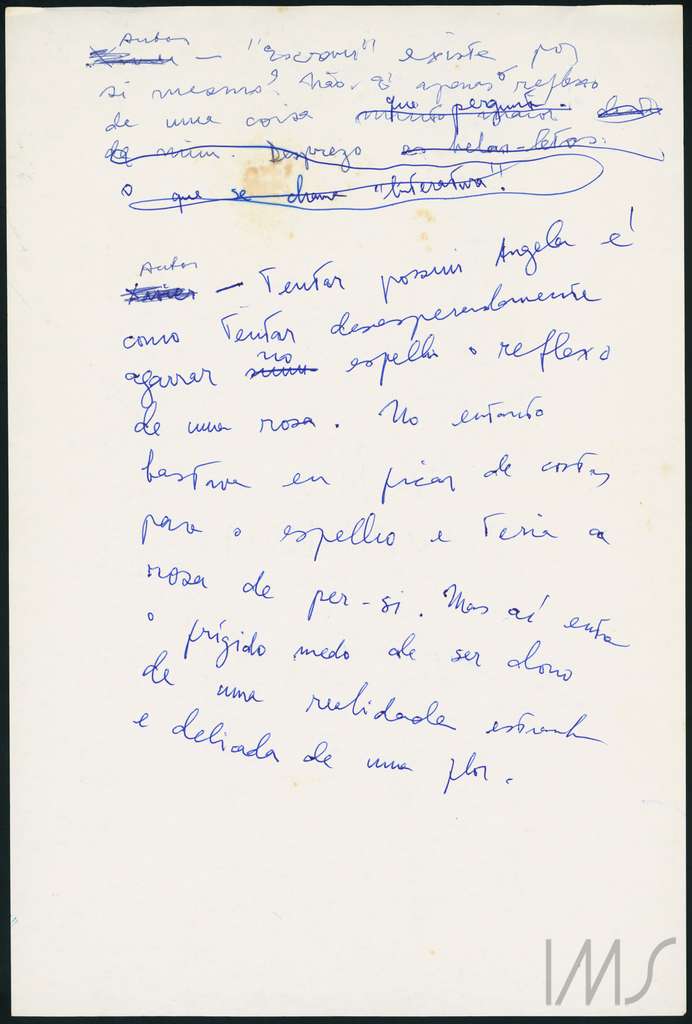 Autor
— "Escrever" existe por
si mesmo? Não. É apenas o reflexo
de uma coisa que pergunta.
de mim. Desprezo as belas-letras.
o que se chama "literatura".
Autor
— Tentar possuir Angela é
como tentar desesperadamente
agarrar no espelho o reflexo
de uma rosa. No entanto
bastava eu ficar de costas
para o espelho e teria a
rosa de per-si. Mas aí entra
o frígido medo de ser dono
de uma realidade estranha
e delicada de uma flor.
IMS